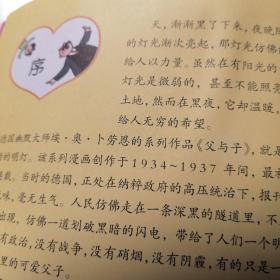 序
天，渐渐黑了下来，夜晚
的灯光渐次亮起，那灯光仿佛
给人以力量。虽然在有阳光的
灯光是微弱的，甚至不能照亮
土地，然而在黑夜，它却温暖
给人无穷的希望。
德国幽默大师埃·奥·卜劳恩的系列作品《父与子》，就
的明灯。该系列漫画创作于1934~1937年间，最初
载。当时的德国，正处在纳粹政府的高压统治下，报刊
味，毫无生气。人民仿佛走在一条深黑的隧道里，不
出现，仿佛一道划破黑暗的闪电，带给了人们一个
有政治，没有战争，没有硝烟，没有阴霾，有的只是一
里的可爱父子。